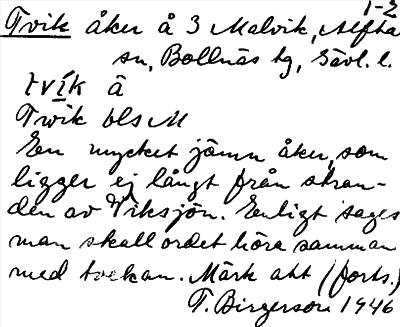 1-2
Tvik åker å 3 Malvik, Alfta
sn, Bollnäs tg, Gävl. l.
tvik å
Twik bls M
En mycket jämn åker, som
ligger ej långt från stran-
den av Viksjön. Enligt sages
man skall ordet höra samman
med tvekan. Märk att (forts.)
T. Birgerson 1946